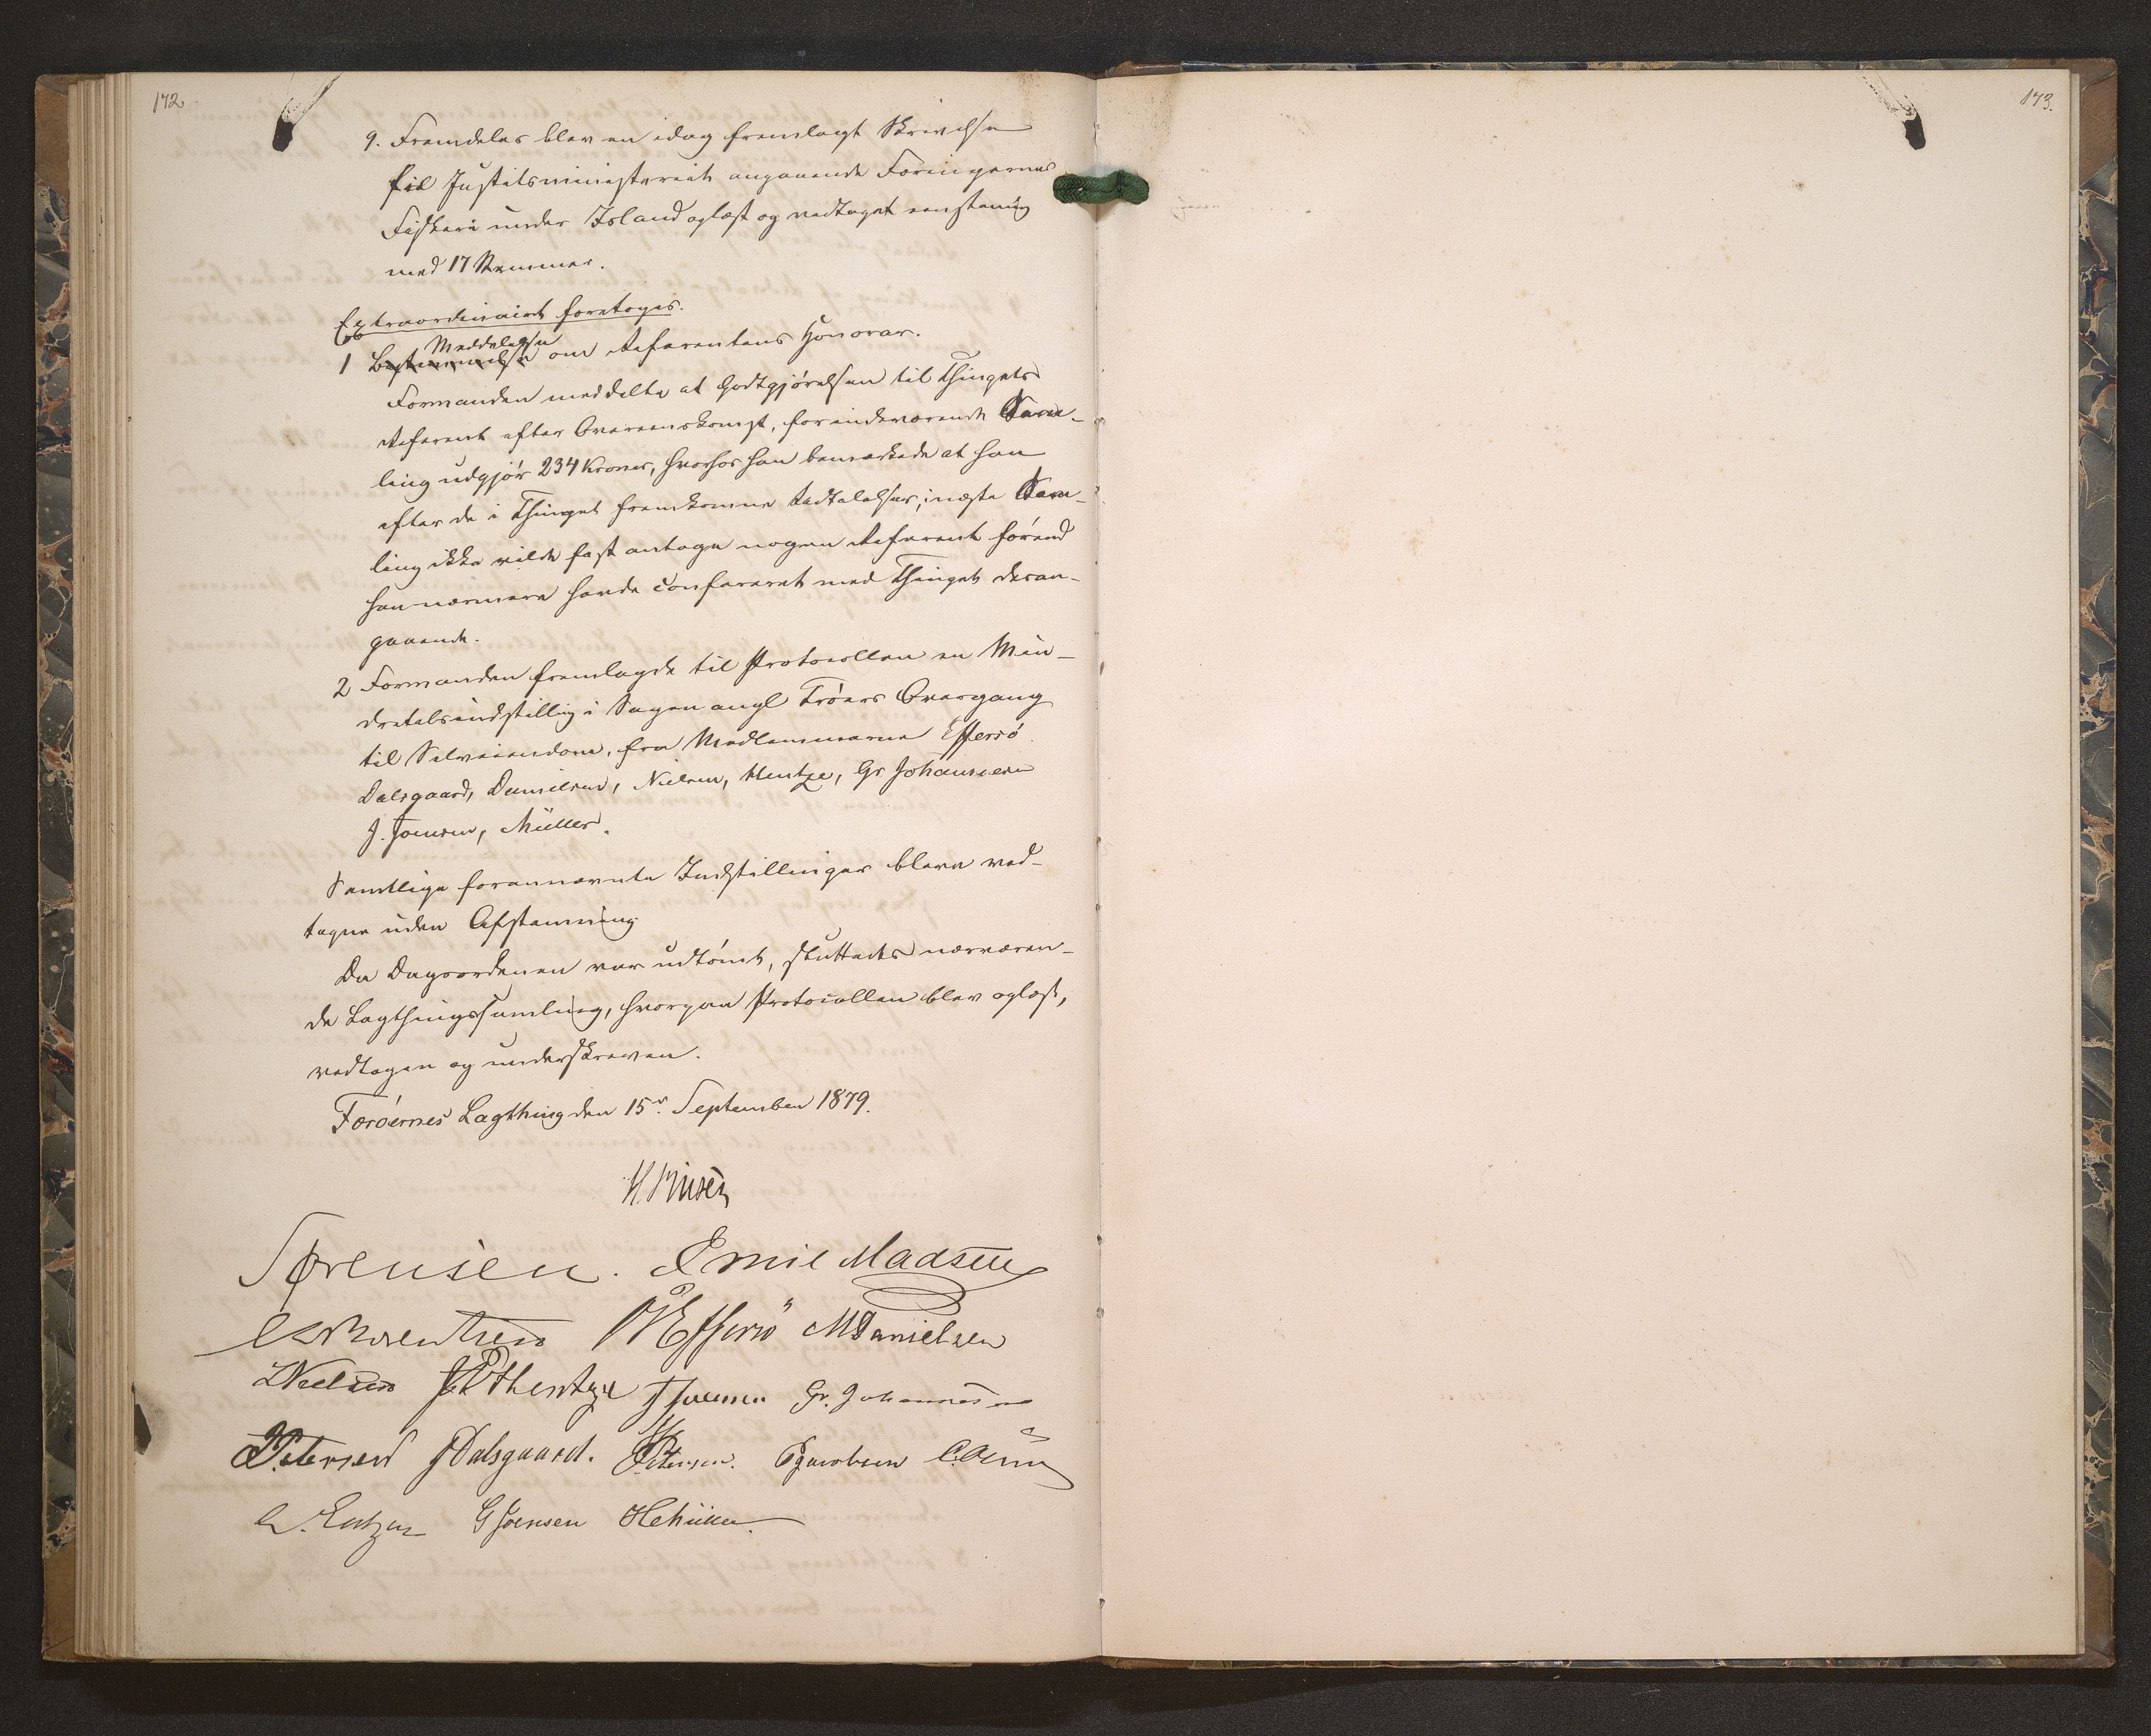 172
9. Fremdeles blev en idag fremlagt Skrivelse
til Justitsministeriet angaaende Færingernes
Fiskeri under Island oplæst og vedtaget eenstemig
med 17 Stemmer.
Extraordinairt foretoges.
Meddelelse
1 Bestemmelse om Referentens Honorar.
Formanden meddelte at Godtgjörelsen til Thingets
Referent efter Overeenskomst, for indeværende Sam-
ling udgjör 234 Kroner, hvorhos han bemærkede at han
efter de i Thinget fremkomne Udtalelser, i næste Sam-
ling ikke vilde fast antage nogen Referent förend
han nærmere havde confereret med Thinget deran-
gaaende.
2 Formanden fremlagde til Protocollen en Min-
dretalsindstilling i Sagen angl Tröers Overgang
til Selveiendom, fra Medlemmerne Effersö
Dalsgaard, Danielsen, Nielsen, Hentze, Gr Johannesen
J. Joensen, Müller.
Samtlige forannævnte Indstillinger bleve ved-
tagne uden Afstemning
Da Dagsordenen var udtömt, sluttedes nærværen-
de Lagthingssamling, hvorpaa Protocollen blev oplæst,
vedtagen og underskreven.
Færöernes Lagthing den 15de September 1879.
H. Finsen
Sørensen. Emil Madsen
Effersö MDanielsen
Nielsen Hentze J Joensen Gr. Johannesen
Petersen JDalsgaard. Petersen. PJacobsen
G Joensen HMüller.
173.